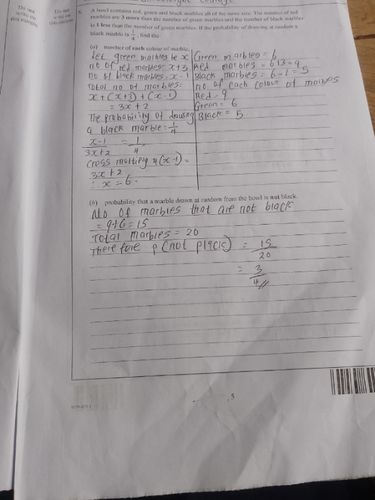 A bowl contains red, green and black marbles all of the same size. The number of red
marbles are 3 more than the number of green marbles and the number of black marbles
is 1 less than the number of green marbles. If the probability of drawing at random a
black marble is 1/4, find the
(a) number of each colour of marble,
Let green marbles be x
no of red marbles: x+3
no of black marbles = x-1
Total no of marbles:
x+(x+3)+(x-1)
= 3x+2
The probability of drawing
a black marble = 1/4
x-1/3x+2 = 1/4
Cross multiply 4(x-1)=
3x+2
∴ x=6.
Green marbles = 6
Red marbles = 6+3=9
Black marbles = 6-1=5
no of each colour of
Red = 9
Green = 6
Black = 5
(b) probability that a marble drawn at random from the bowl is not black.
No of marbles that are not black
= 9+6=15
Total marbles = 20
Therefore p(not black) = 15/20
= 3/4